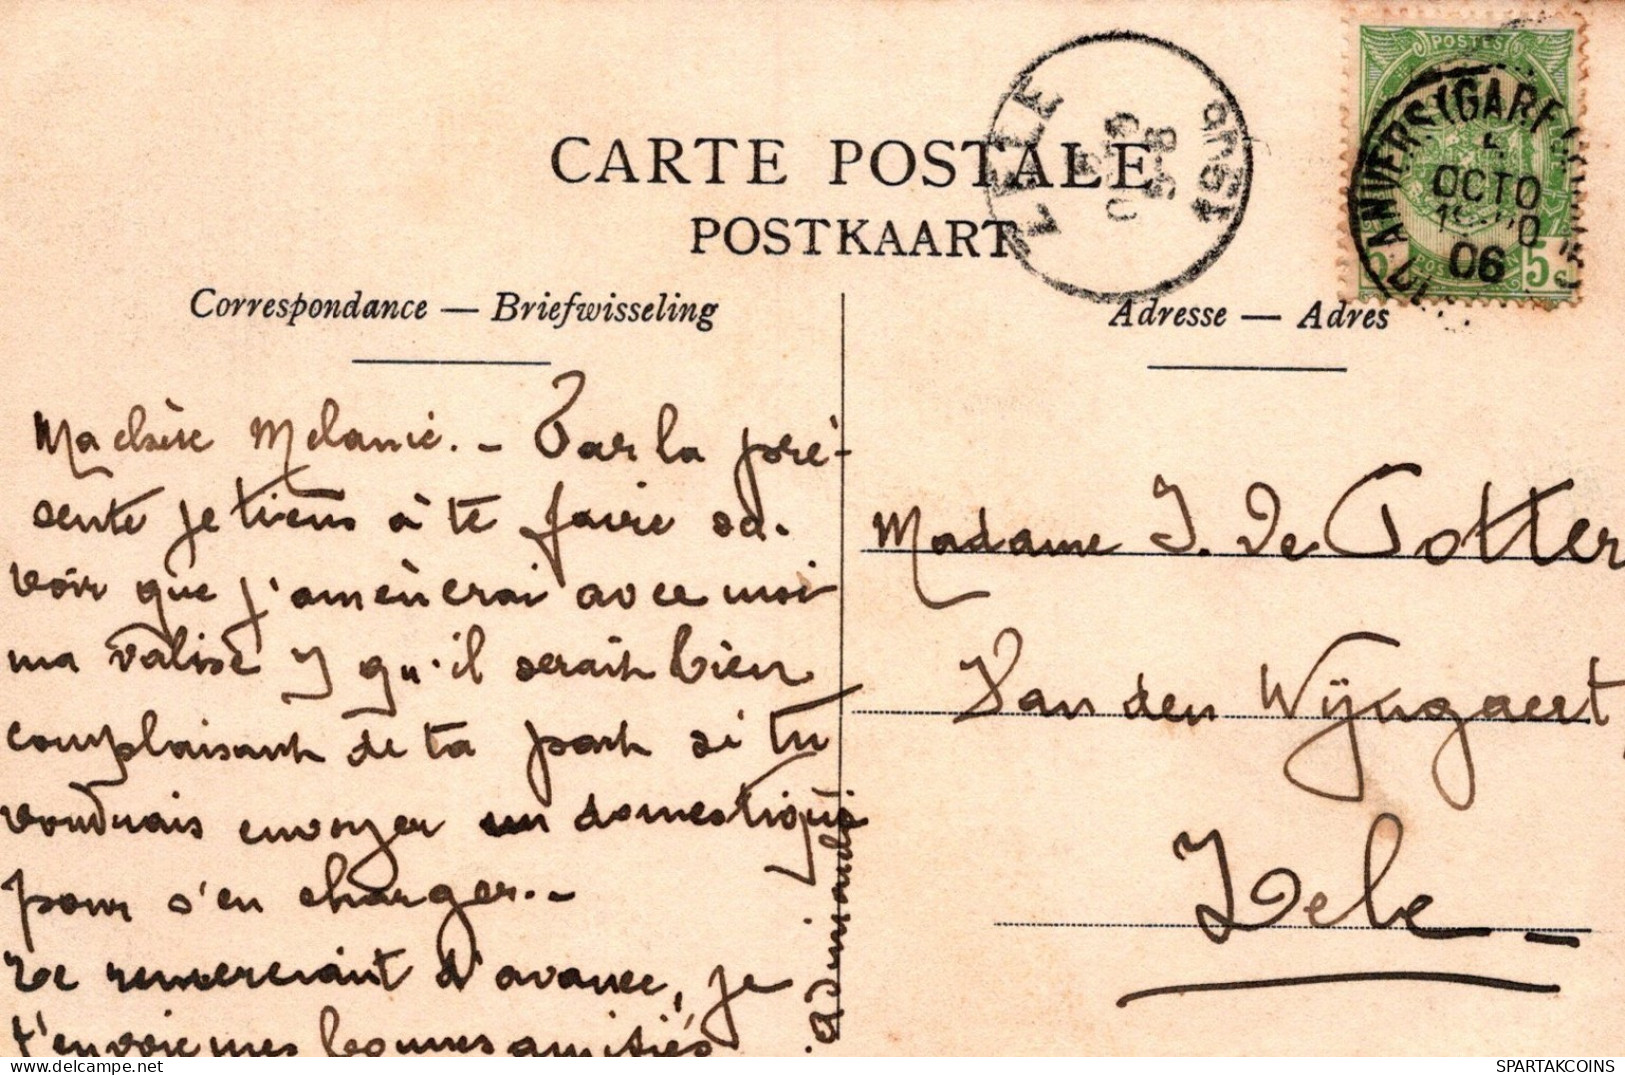 CARTE POSTALE
POSTKAART
Correspondance — Briefwisseling
Adresse — Adres
POSTES
ANVERS (GARE
OCTO
06
5 5
ZELE
Ma chère Melanie. — Par la pré-
sente je tiens à te faire sa-
voir que j'amènerai avec moi
ma valise & qu'il serait bien
complaisant de ta part si tu
voudrais envoyer un domestique
pour s'en charger. —
Te remerciant d'avance, je
t'envoie mes bonnes amitiés
Madame J. De Potter
Van den Wijngaert
Zele —
SPARTAKCOINS